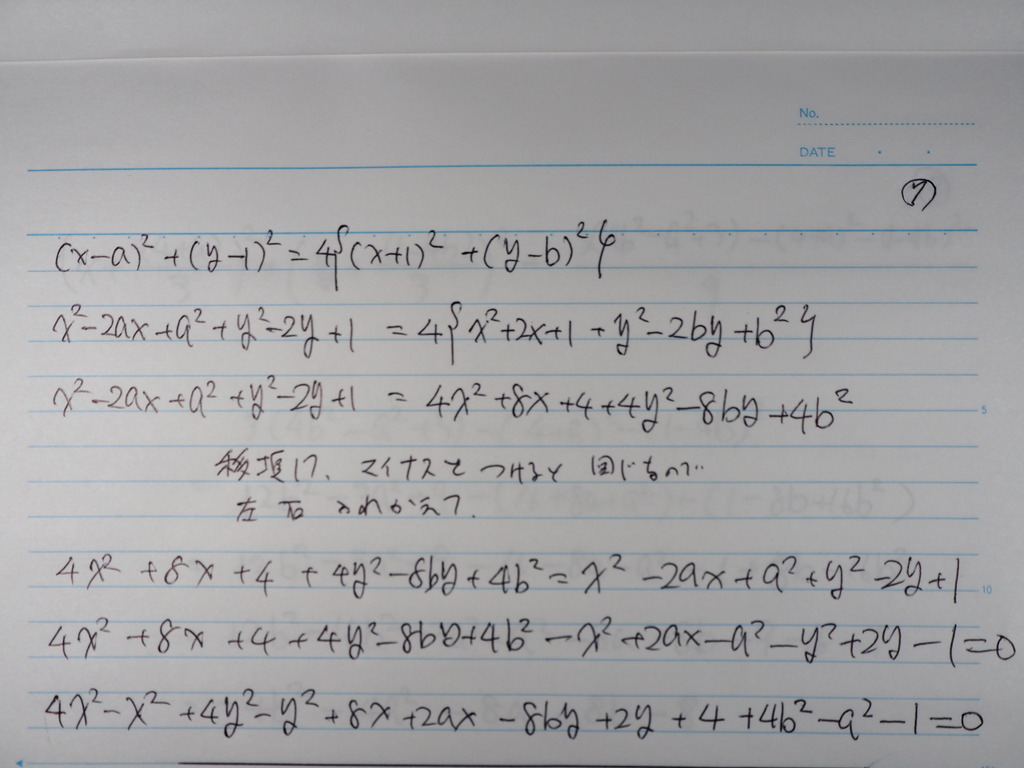 No.
DATE
⑦
(x-a)²+(y-1)²=4{(x+1)²+(y-b)²}
x²-2ax+a²+y²-2y+1 =4{x²+2x+1+y²-2by+b²}
x²-2ax+a²+y²-2y+1 = 4x²+8x+4+4y²-8by+4b²
移項して、マイナスを つけると 同じなので
左右 入れかえて、
4x²+8x+4+4y²-8by+4b²=x²-2ax+a²+y²-2y+1
4x²+8x+4+4y²-8by+4b²-x²+2ax-a²-y²+2y-1=0
4x²-x²+4y²-y²+8x+2ax-8by+2y+4+4b²-a²-1=0